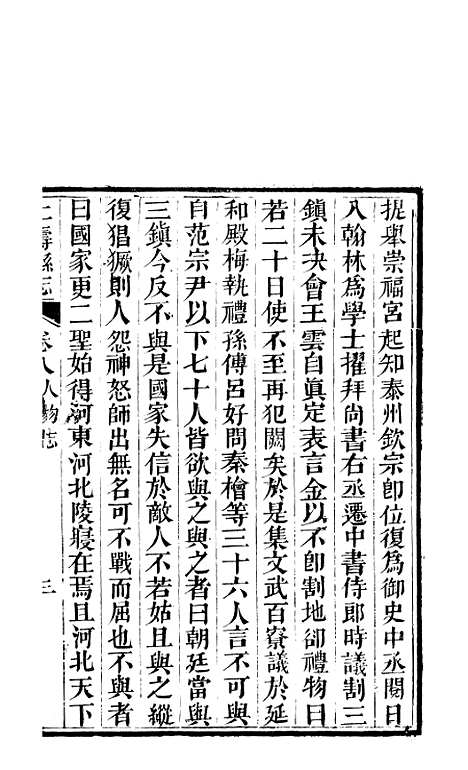 提舉崇福宮起知秦州欽宗卽位復爲御史中丞閱日
入翰林爲學士擢拜尚書右丞遷中書侍郎時議割三
鎮未決會王雲自眞定表言金以不卽割地卻禮物日
若二十日使不至再犯闕矣於是集文武百寮議於延
和殿梅執禮孫傅呂好問秦檜等三十六人言不可與
自范宗尹以下七十人皆欲與之與之者曰朝廷當與
三鎮今反不與是國家失信於敵人不若姑且與之縱
復猖獗則人怨神怒師出無名可不戰而屈也不與者
曰國家更二聖始得河東河北陵寢在焉且河北天下
仁壽縣志 卷八人物志 三